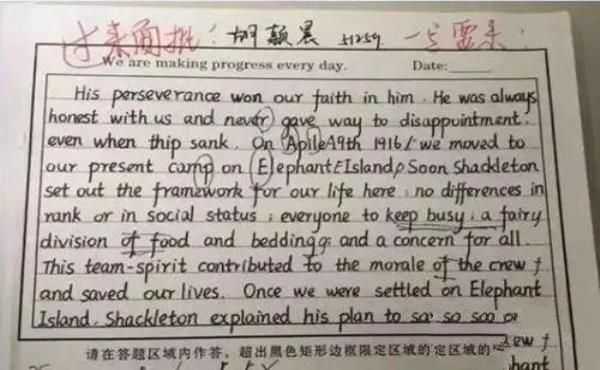 过来面批！胡颖晨 51259 一定要来！
We are making progress every day. Date:
His perseverance won our faith in him. He was always
honest with us and never gave way to disappointment.
even when thip sank. On Aplie 19th 1916, we moved to
our present camp on Elephant Island. Soon Shackleton
set out the framework for our life here: no differences in
rank or in social status; everyone to keep busy; a fairy
division of food and bedding; and a concern for all.
This team-spirit contributed to the morale of the crew
and saved our lives. Once we were settled on Elephant
Island. Shackleton explained his plan to sa so soo
请在答题区域内作答，超出黑色矩形边框限定区域的 定区域的
crew
hant